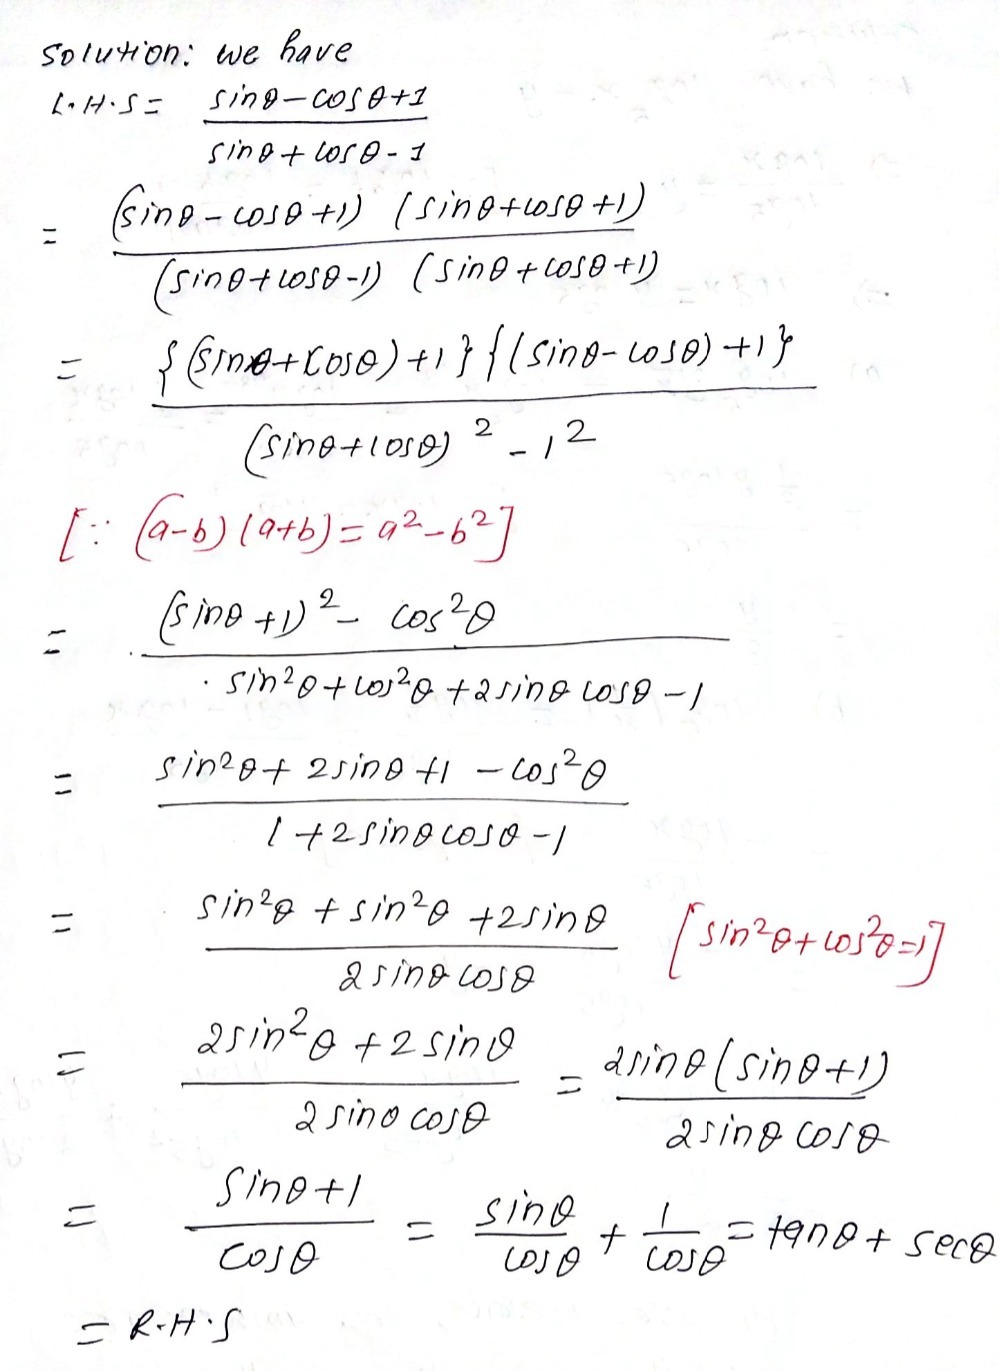 Solution: we have
L.H.S = sinθ-cosθ+1
sinθ+cosθ-1
= (sinθ-cosθ+1) (sinθ+cosθ+1)
(sinθ+cosθ-1) (sinθ+cosθ+1)
= {(sinθ+cosθ)+1}{(sinθ-cosθ)+1}
(sinθ+cosθ)² - 1²
[∵ (a-b)(a+b)=a²-b²]
= (sinθ+1)² - cos²θ
sin²θ+cos²θ+2sinθ cosθ-1
= sin²θ+2sinθ+1-cos²θ
1+2sinθcosθ-1
= sin²θ+sin²θ+2sinθ [sin²θ+cos²θ=1]
2sinθcosθ
= 2sin²θ+2sinθ = 2sinθ(sinθ+1)
2sinθcosθ 2sinθcosθ
= sinθ+1 = sinθ + 1 = tanθ+secθ
cosθ cosθ cosθ
= R.H.S